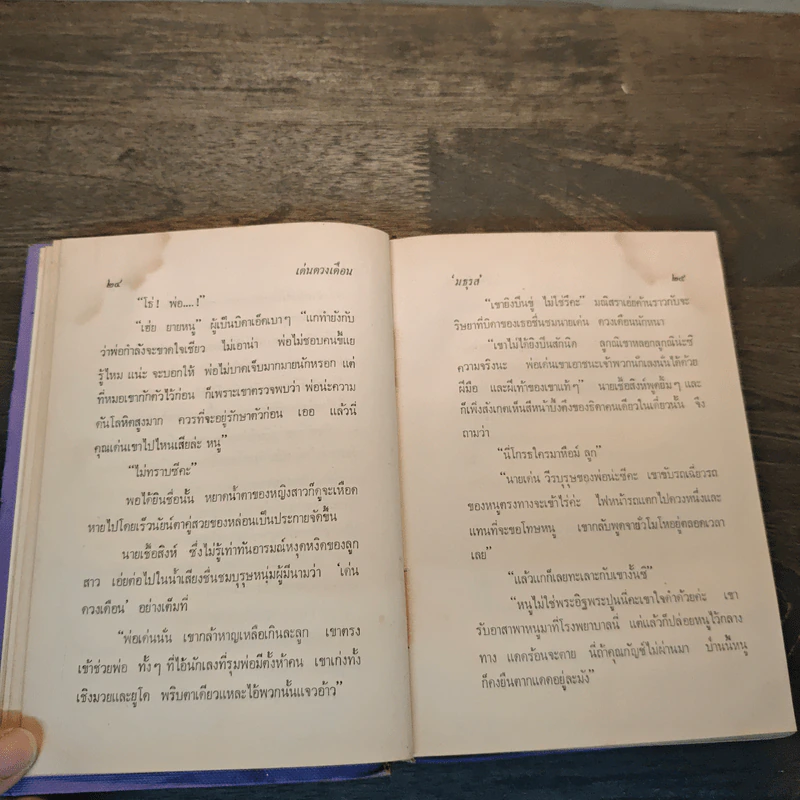 ๒๔ เด่นดวงเดือน
“โธ่! พ่อ....!”
“เฮ่ย ยายหนู” ผู้เป็นบิดาเอ็ดเบาๆ “แกทำยังกับ
ว่าพ่อกำลังจะขาดใจเชียว ไม่เอาน่า พ่อไม่ชอบคนขี้แย
รู้ไหม แน่ะ จะบอกให้ พ่อไม่บาดเจ็บมากมายนักหรอก แต่
ที่หมอเขากักตัวไว้ก่อน ก็เพราะเขาตรวจพบว่า พ่อน่ะความ
ดันโลหิตสูงมาก ควรที่จะอยู่รักษาตัวก่อน เออ แล้วนี่
คุณเด่นเขาไปไหนเสียล่ะ หนู”
“ไม่ทราบซีคะ”
พอได้ยินชื่อนั้น หยาดน้ำตาของหญิงสาวก็ดูจะเหือด
หายไปโดยเร็วนัยน์ตาคู่สวยของหล่อนเป็นประกายจัดขึ้น
นายเชื้อสิงห์ ซึ่งไม่รู้เท่าทันอารมณ์หงุดหงิดของลูก
สาว เอ่ยต่อไปในน้ำเสียงชื่นชมบุรุษหนุ่มผู้มีนามว่า ‘เด่น
ดวงเดือน’ อย่างเต็มที่
“พ่อเด่นนั่น เขากล้าหาญเหลือเกินละลูก เขาตรง
เข้าช่วยพ่อ ทั้งๆ ที่ไอ้นักเลงที่รุมพ่อมีตั้งห้าคน เขาเก่งทั้ง
เชิงมวยและยูโด พริบตาเดียวแหละไอ้พวกนั้นแจวอ้าว”
‘มธุรส’ ๒๕
“เขายิงปืนขู่ ไม่ใช่รึคะ” มณิสราเอ่ยค้านราวกับจะ
ริษยาที่บิดาของเธอชื่นชมนายเด่น ดวงเดือนนักหนา
“เขาไม่ได้ยิงปืนสักนิด ลูกณีเขาหลอกลูกณีน่ะซี
ความจริงนะ พ่อเด่นเขาเอาชนะเจ้าพวกนักเลงนั่นได้ด้วย
ฝีมือ และฝีเท้าของเขาแท้ๆ” นายเชื้อสิงห์พูดยิ้มๆ และ
ก็เพิ่งสังเกตเห็นสีหน้าบึ้งตึงของธิดาคนเดียวในเดี๋ยวนั้น จึง
ถามว่า
“นี่โกรธใครมาหือม์ ลูก”
“นายเด่น วีรบุรุษของพ่อน่ะซีคะ เขาขับรถเฉี่ยวรถ
ของหนูตรงทางจะเข้าไร่ค่ะ ไฟหน้ารถแตกไปดวงหนึ่งและ
แทนที่จะขอโทษหนู เขากลับพูดจายั่วโมโหอยู่ตลอดเวลา
เลย”
“แล้วแกก็เลยทะเลาะกับเขางั้นซี”
“หนูไม่ใช่พระอิฐพระปูนนี่คะเขาใจดำด้วยค่ะ เขา
รับอาสาพาหนูมาที่โรงพยาบาลนี่ แต่แล้วก็ปล่อยหนูไว้กลาง
ทาง แดดร้อนจะตาย นี่ถ้าคุณกัญช์ไม่ผ่านมา ป่านนี้หนู
ก็คงยืนตากแดดอยู่ละมัง”